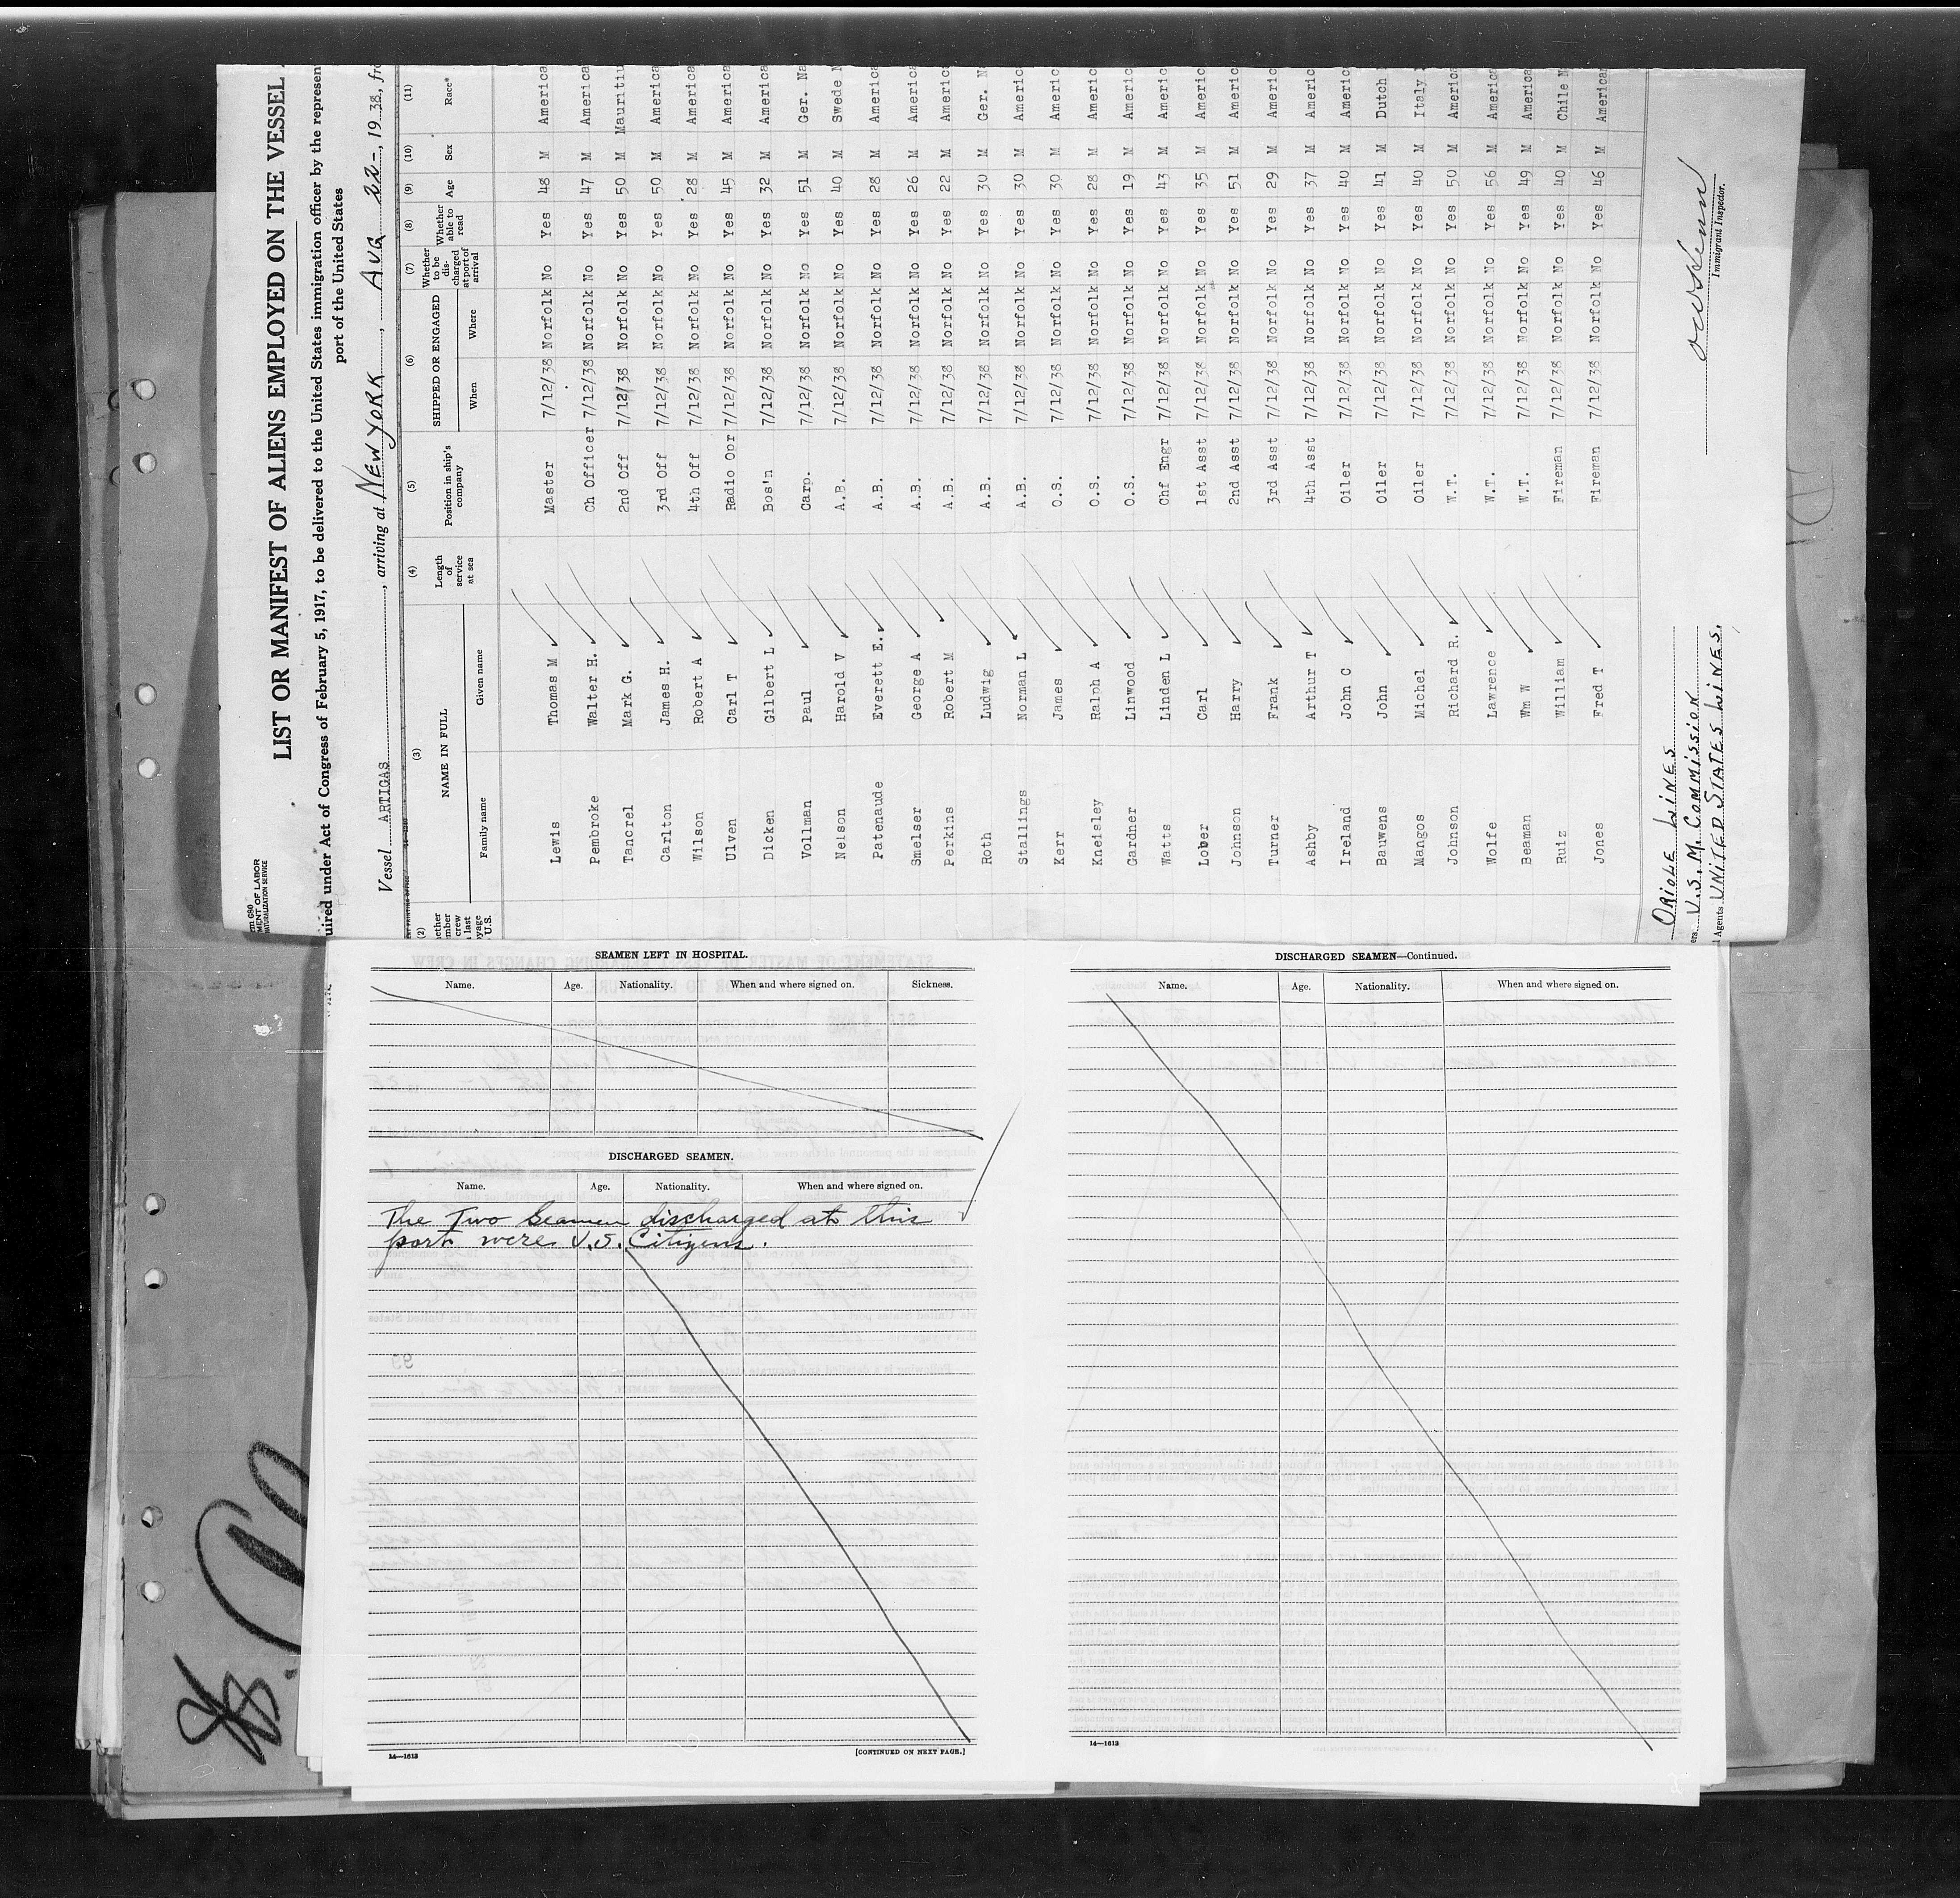 LIST OR MANIFEST OF ALIENS EMPLOYED ON THE VESSEL
uired under Act of Congress of February 5, 1917, to be delivered to the United States immigration officer by the represen
port of the United States
Vessel ARTIGAS, arriving at NEW YORK, AUG 22-, 1938, fro
MENT OF LABOR
NATURALIZATION SERVICE
(2) (3) (4) (5) (6) (7) (8) (9) (10) (11)
NAME IN FULL
Family name Given name
Length of service at sea
Position in ship's company
SHIPPED OR ENGAGED
When Where
Whether to be discharged at port of arrival
Whether able to read
Age Sex Race*
Lewis Thomas M Master 7/12/38 Norfolk No Yes 48 M America
Pembroke Walter H. Ch Officer 7/12/38 Norfolk No Yes 47 M America
Tancrel Mark G. 2nd Off 7/12/38 Norfolk No Yes 50 M Mauritiu
Carlton James H. 3rd Off 7/12/38 Norfolk No Yes 50 M America
Wilson Robert A 4th Off 7/12/38 Norfolk No Yes 28 M America
Ulven Carl T Radio Opr 7/12/38 Norfolk No Yes 45 M America
Dicken Gilbert L Bos'n 7/12/38 Norfolk No Yes 32 M America
Vollman Paul Carp. 7/12/38 Norfolk No Yes 51 M Ger. Na
Nelson Harold V A.B. 7/12/38 Norfolk No Yes 40 M Swede N
Patenaude Everett E. A.B. 7/12/38 Norfolk No Yes 28 M America
Smelser George A A.B. 7/12/38 Norfolk No Yes 26 M America
Perkins Robert M A.B. 7/12/38 Norfolk No Yes 22 M America
Roth Ludwig A.B. 7/12/38 Norfolk No Yes 30 M Ger. N
Stallings Norman L A.B. 7/12/38 Norfolk No Yes 30 M Americ
Kerr James O.S. 7/12/38 Norfolk No Yes 30 M Americ
Kneisley Ralph A O.S. 7/12/38 Norfolk No Yes 28 M Americ
Gardner Linwood O.S. 7/12/38 Norfolk No Yes 19 M Americ
Watts Linden L Chf Engr 7/12/38 Norfolk No Yes 43 M Americ
Lober Carl 1st Asst 7/12/38 Norfolk No Yes 35 M Americ
Johnson Harry 2nd Asst 7/12/38 Norfolk No Yes 51 M Americ
Turner Frank 3rd Asst 7/12/38 Norfolk No Yes 29 M Americ
Ashby Arthur T 4th Asst 7/12/38 Norfolk No Yes 37 M Americ
Ireland John C Oiler 7/12/38 Norfolk No Yes 40 M Americ
Bauwens John Oiler 7/12/38 Norfolk No Yes 41 M Dutch
Mangos Michel Oiler 7/12/38 Norfolk No Yes 40 M Italy
Johnson Richard R. W.T. 7/12/38 Norfolk No Yes 50 M America
Wolfe Lawrence W.T. 7/12/38 Norfolk No Yes 56 M America
Beaman Wm W W.T. 7/12/38 Norfolk No Yes 49 M America
Ruiz William Fireman 7/12/38 Norfolk No Yes 40 M Chile N
Jones Fred T Fireman 7/12/38 Norfolk No Yes 46 M American
ORIOLE LINES
ers U.S.M. COMMISSION
l Agents UNITED STATES LINES.
Immigrant Inspector.
SEAMEN LEFT IN HOSPITAL.
Name. Age. Nationality. When and where signed on. Sickness.
DISCHARGED SEAMEN.
Name. Age. Nationality. When and where signed on.
The Two Seamen discharged at this
port were U.S. Citizens.
14—1613 [CONTINUED ON NEXT PAGE.]
DISCHARGED SEAMEN—Continued.
Name. Age. Nationality. When and where signed on.
14—1613